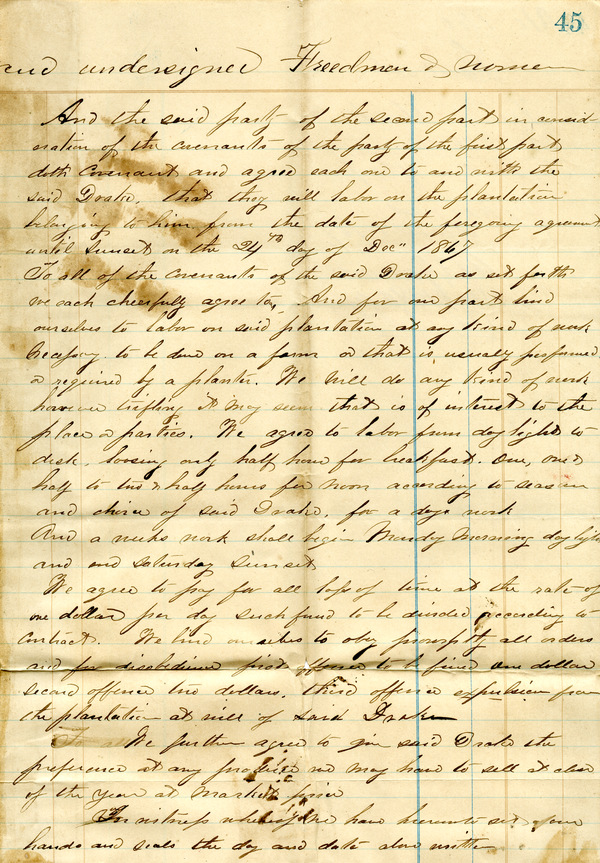 45
and undersigned Freedmen & women
And the said party of the second part in consid
eration of the covenants of the party of the first part
doth Covenant and agree each one to and with the
said Drake, that they will labor on the plantation
belonging to him from the date of the foregoing agreement
until Sunset on the 24th day of Dec" 1867
To all of the Covenants of the said Drake as set forth
we each cheerfully agree to, And for our part bind
ourselves to labor on said plantation at any kind of work
Necessary to be done on a farm or that is usually performed
or required by a planter. We will do any kind of work
however trifling it may seem that is of interest to the
place or parties. We agree to labor from day light to
dusk, loosing only half hour for breakfast. One, one &
half to two & half hours for noon according to season
and choice of said Drake, for a days work
And a weeks work shall begin Monday Morning day light
and end Saturday Sunset
We agree to pay for all loss of time at the rate of
one dollar per day such fund to be divided according to
Contract. We bind ourselves to obey promptly all orders
and for disobedience first offence to be fined one dollar
second offence two dollars, third offence expulsion from
the plantation at will of said Drake
We further agree to give said Drake the
preference at any produce we may have to sell at close
of the year at market price
In witness whereof We have hereunto set our
hands and seals the day and date above written